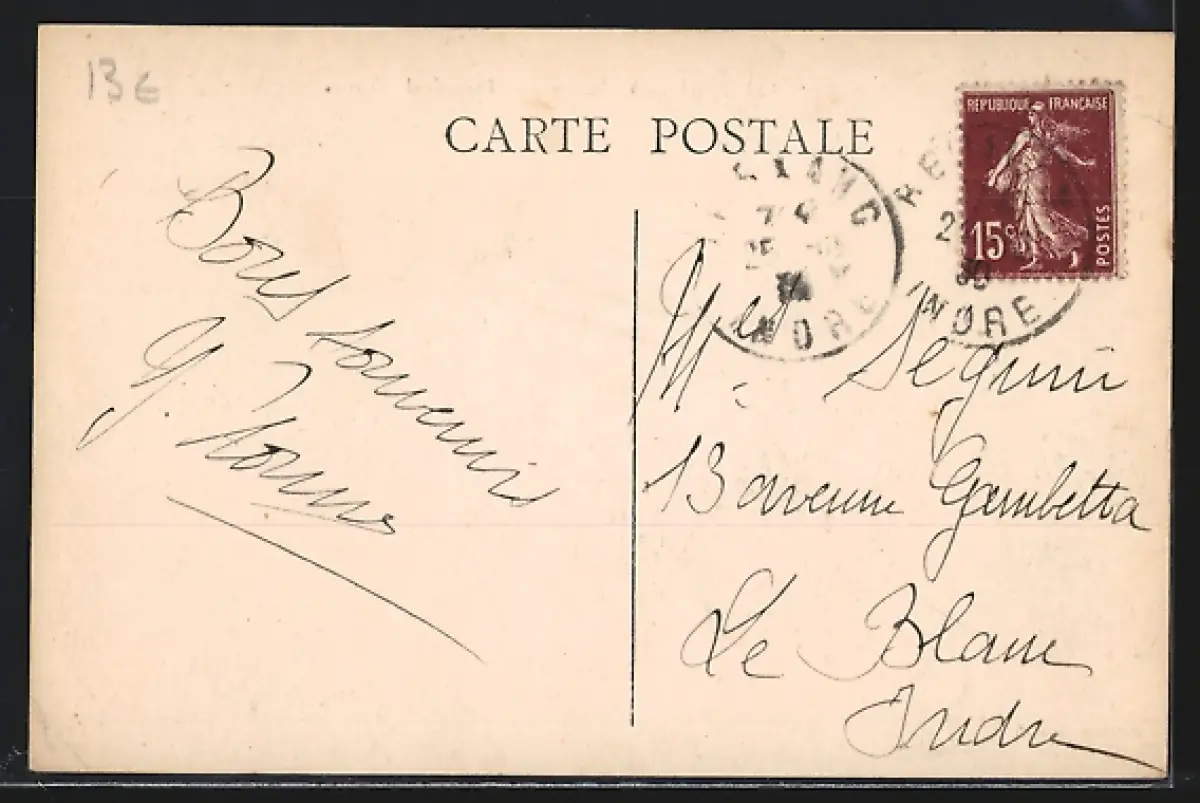 13€
CARTE POSTALE
REPUBLIQUE FRANÇAISE
15c
POSTES
INDRE
INDRE
Bons souvenirs
G.
Seguin
13 avenue Gambetta
Le Blanc
Indre